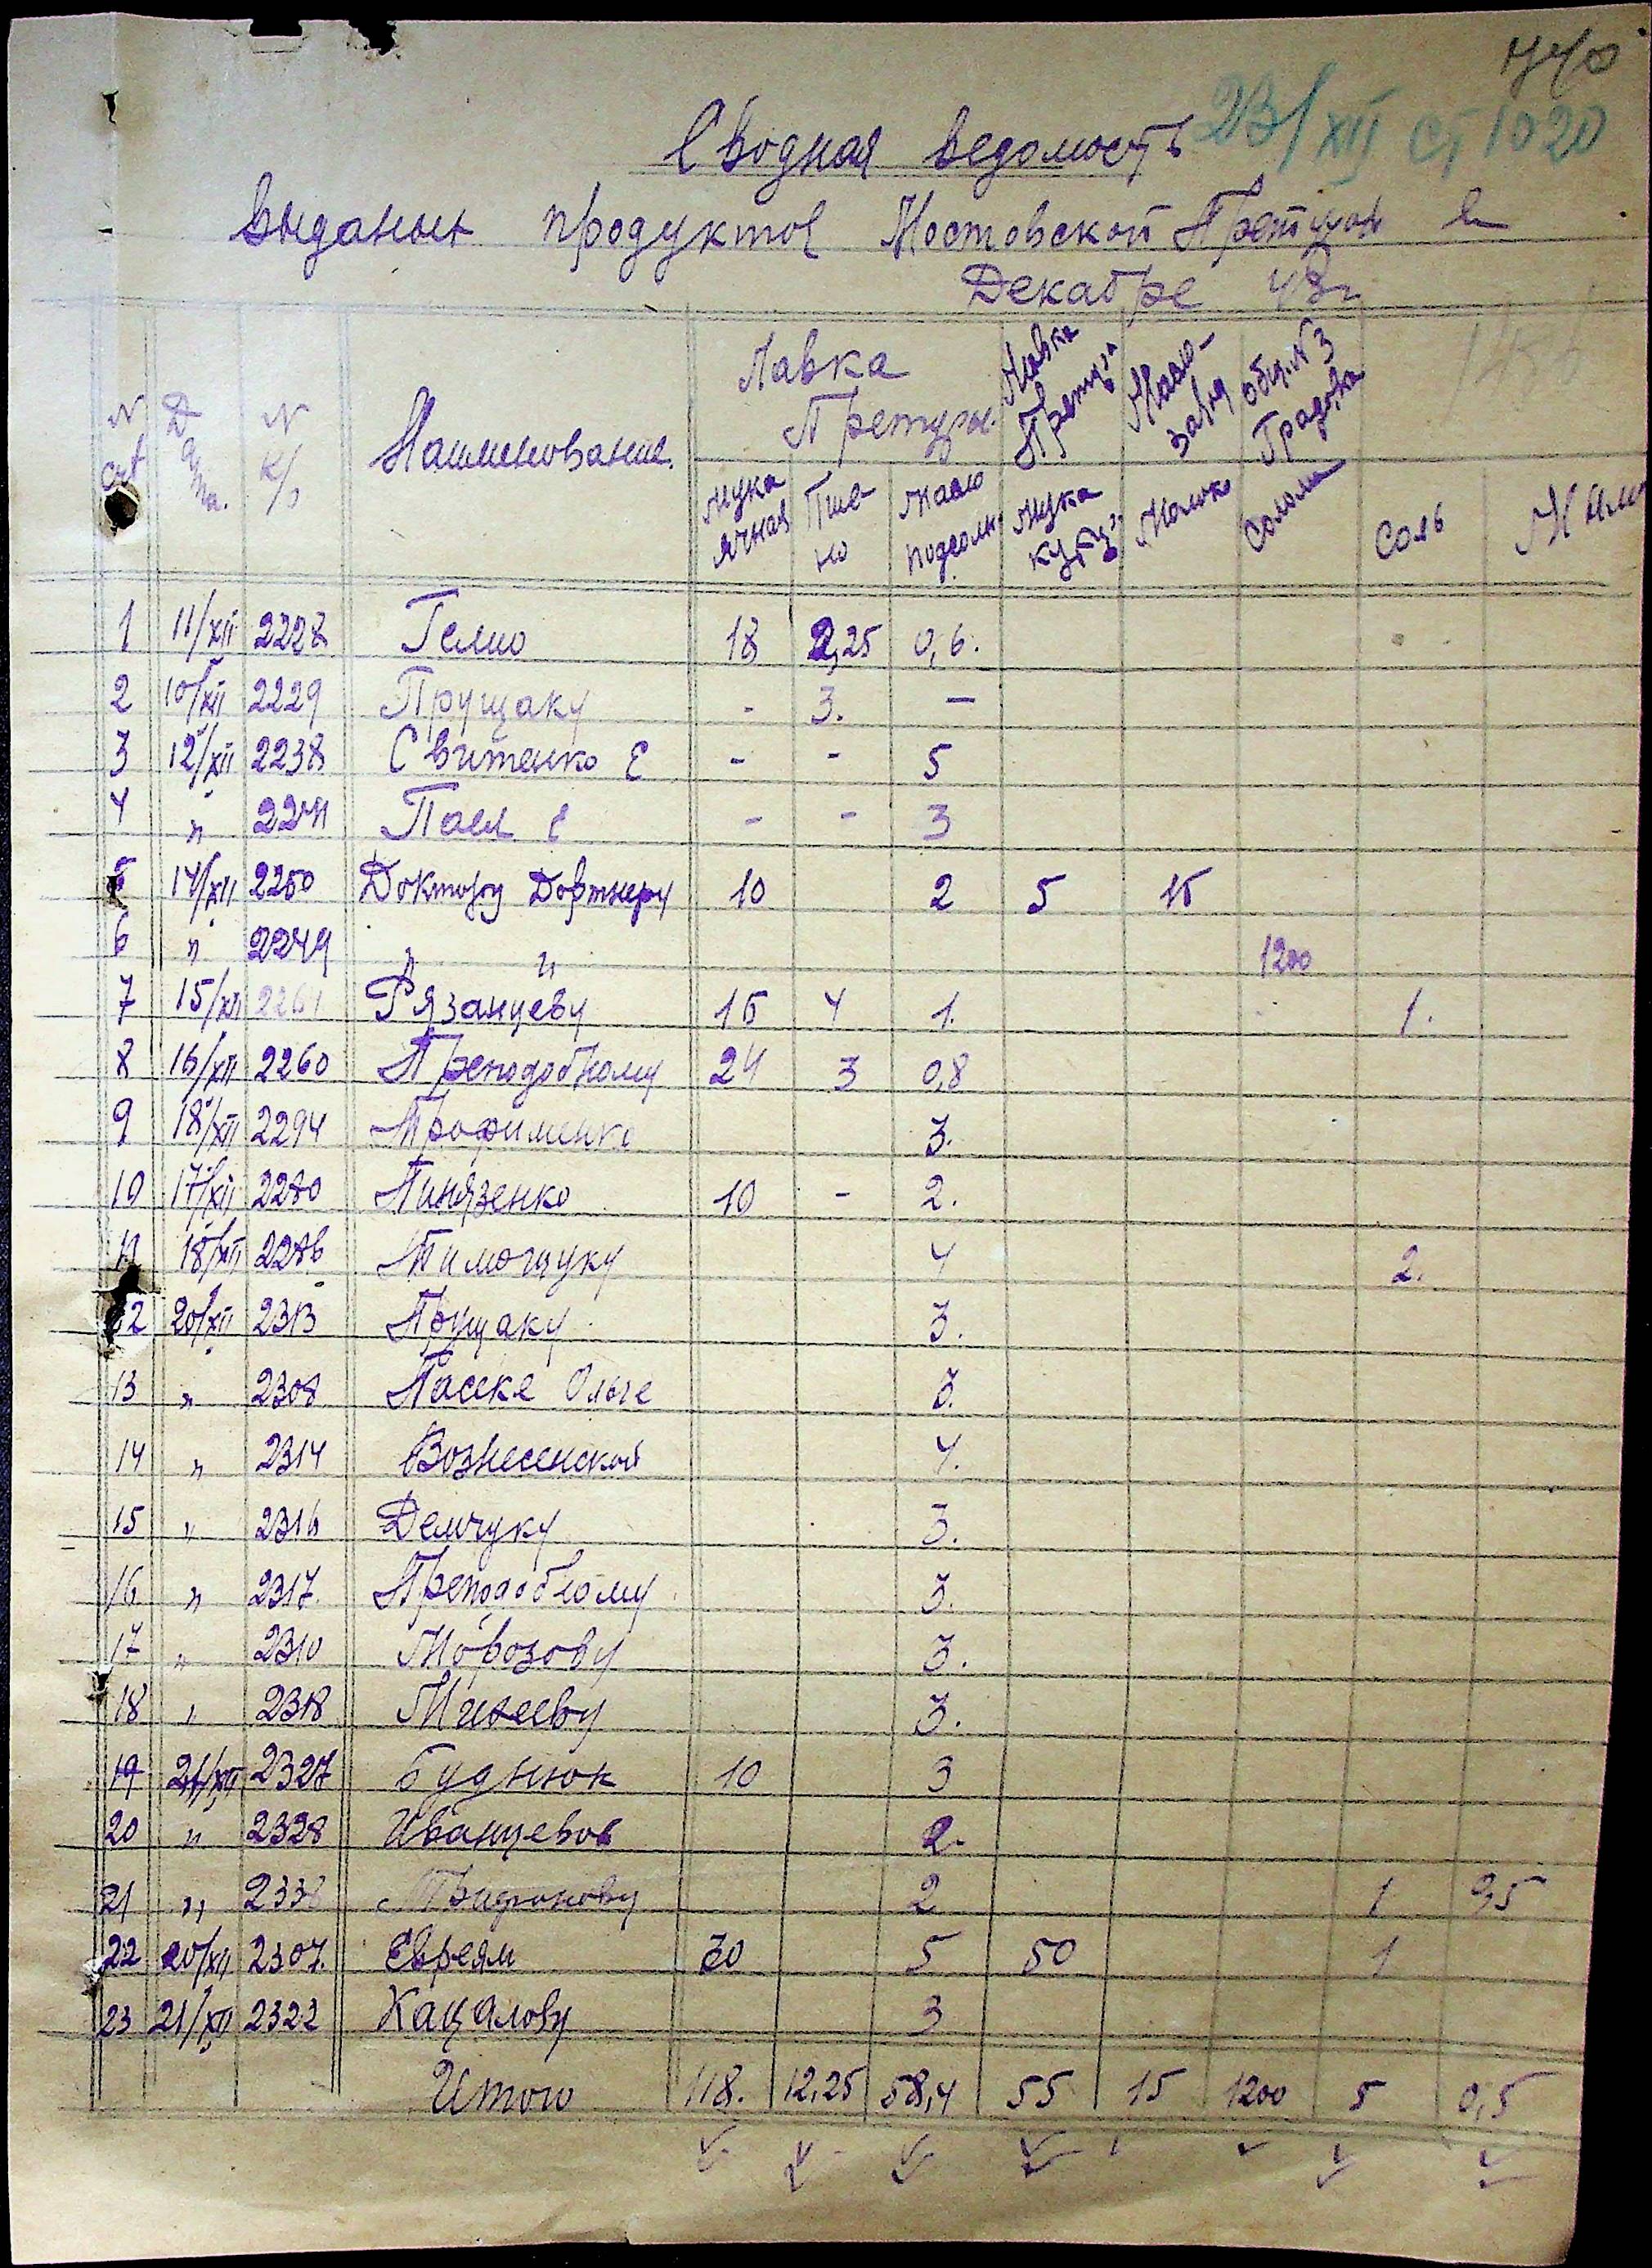 740
23/XII ст 1020
Сводная ведомость
выданых продуктов Мостовской Претуры в
Декабре 43г
N сч Дата. N к/о Наименование. Лавка Претуры. Лавка Претуры Масло-завод Общ. N 3 Градовка
мука ячная Пше-но Масло подсолн. мука кукур. Молоко Солома Соль Мыло
1 11/XII 2228 Гелио 18 2,25 0,6.
2 10/XII 2229 Прущаку - 3. —
3 12/XII 2238 Свитенко Е - - 5
4 " 2241 - - 3
5 14/XII 2250 Доктору Дортнеру 10 2 5 15
6 " 2249 " " 1200
7 15/XII 2261 Рязанцеву 16 4 1. 1.
8 16/XII 2260 Преподобному 24 3 0,8
9 18/XII 2294 Трофименко 3.
10 17/XII 2280 Пинязенко 10 - 2.
11 18/XII 2286 Тимощуку 4 2.
12 20/XII 2313 Прущаку 3.
13 " 2308 Пасске Ольге 3.
14 " 2314 Вознесенской 4.
15 " 2316 Демчуку 3.
16 " 2317. Преподобному 3.
17 " 2310 Морозову 3.
18 " 2318 Михееву 3.
19 21/XII 2327 Будянюк 10 3
20 " 2328 Иванцевов 2.
21 " 233 2 1 0,5
22 20/XII 2307. Евреям 30 5 50 1
23 21/XII 2322 Кацалову 3
Итого 118. 12,25 58,4 55 15 1200 5 0,5